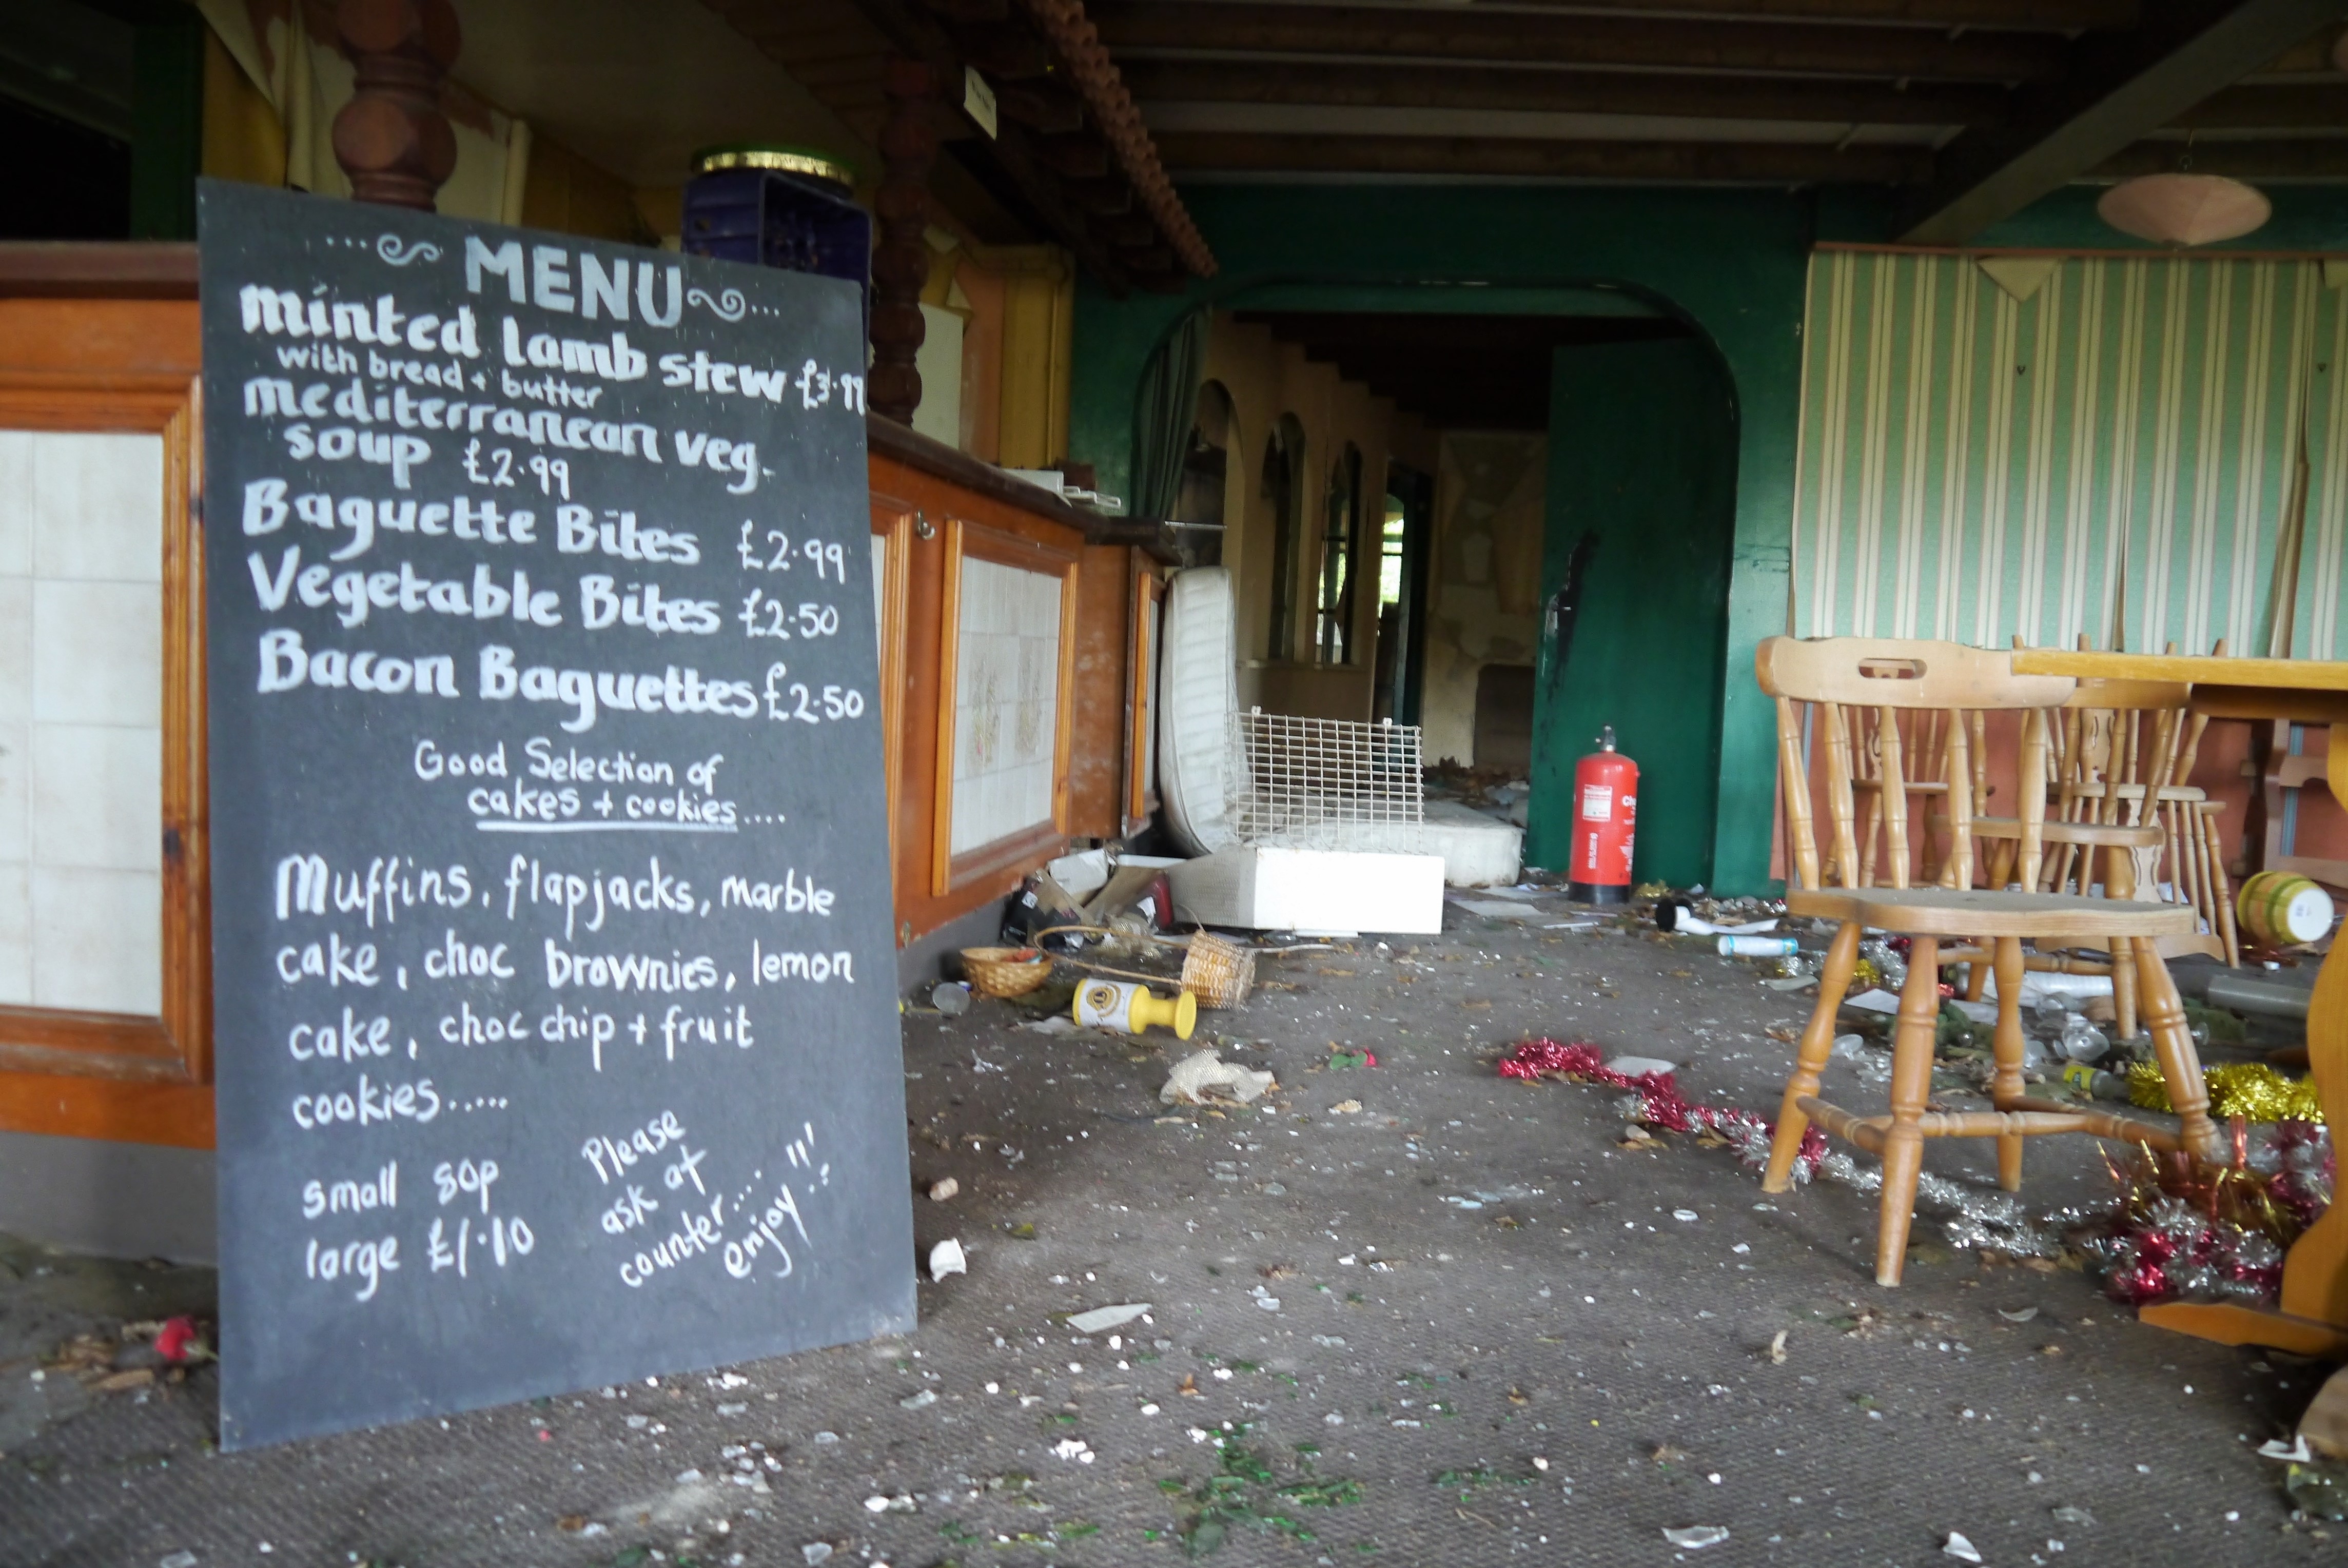 MENU
minted lamb stew £3.99
with bread + butter
mediterranean veg.
soup £2.99
Baguette Bites £2.99
Vegetable Bites £2.50
Bacon Baguettes £2.50
Good Selection of
cakes + cookies....
Muffins, flapjacks, marble
cake, choc brownies, lemon
cake, choc chip + fruit
cookies.....
small 80p
large £1.10
Please
ask at
counter....
enjoy!!!